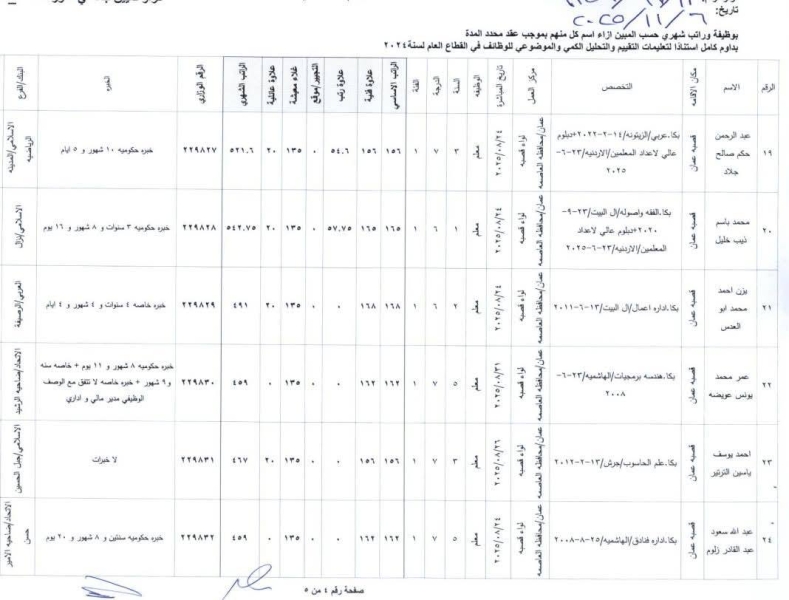 تاريخ: ٢٠٢٥/١١/٦
بوظيفة وراتب شهري حسب المبين ازاء اسم كل منهم بموجب عقد محدد المدة
بداوم كامل استنادا لتعليمات التقييم والتحليل الكمي والموضوعي للوظائف في القطاع العام لسنة ٢٠٢٤
الرقم الاسم مكان الاقامه التخصص مركز العمل تاريخ المباشرة الوظيفه السنة الدرجة الفئة الراتب الاساسي علاوة فنية علاوة رتب التجيير/موقع غلاء معيشة علاوة عائلية الراتب الشهري الرقم الوزاري الخبره البنك/الفرع
١٩ عبد الرحمن حكم صالح جلاد قصبه عمان بكا.عربي/الزيتونه/١٤-٢-٢٠٢٢+دبلوم عالي لاعداد المعلمين/الاردنيه/٢٣-٦-٢٠٢٥ عمان/محافظه العاصمه لواء قصبه ٢٠٢٥/٠٨/٢٤ معلم ٣ ٧ ١ ١٥٦ ١٥٦ ٥٤.٦ ٠ ١٣٥ ٢٠ ٥٢١.٦ ٢٢٩٨٢٧ خبره حكوميه ١٠ شهور و ٥ ايام الاسلامي/المدينه الرياضيه
٢٠ محمد باسم ذيب خليل قصبه عمان بكا.الفقه واصوله/ال البيت/٢٣-٩-٢٠٢٠+دبلوم عالي لاعداد المعلمين/الاردنيه/٢٣-٦-٢٠٢٥ عمان/محافظه العاصمه لواء قصبه ٢٠٢٥/٠٨/٢٤ معلم ١ ٦ ١ ١٦٥ ١٦٥ ٥٧.٧٥ ٠ ١٣٥ ٢٠ ٥٤٢.٧٥ ٢٢٩٨٢٨ خبره حكوميه ٣ سنوات و ٨ شهور و ١٦ يوم الاسلامي/نزال
٢١ يزن احمد محمد ابو العدس قصبه عمان بكا.اداره اعمال/ال البيت/١٣-٦-٢٠١١ عمان/محافظه العاصمه لواء قصبه ٢٠٢٥/٠٨/٢٤ معلم ٢ ٦ ١ ١٦٨ ١٦٨ ٠ ٠ ١٣٥ ٢٠ ٤٩١ ٢٢٩٨٢٩ خبره خاصه ٤ سنوات و ٤ شهور و ٤ ايام العربي/الرصيفة
٢٢ عمر محمد يونس عويضه قصبه عمان بكا.هندسه برمجيات/الهاشميه/٢٣-٦-٢٠٠٨ عمان/محافظه العاصمه لواء قصبه ٢٠٢٥/٠٨/٣١ معلم ٥ ٧ ١ ١٦٢ ١٦٢ ٠ ٠ ١٣٥ ٠ ٤٥٩ ٢٢٩٨٣٠ خبره حكوميه ٨ شهور و ١١ يوم + خاصه سنه و٩ شهور + خبره خاصه لا تتفق مع الوصف الوظيفي مدير مالي و اداري الاتحاد/ضاحيه الرشيد
٢٣ احمد يوسف ياسين الترتير قصبه عمان بكا.علم الحاسوب/جرش/١٣-٢-٢٠١٢ عمان/محافظه العاصمه لواء قصبه ٢٠٢٥/٠٨/٢٦ معلم ٣ ٧ ١ ١٥٦ ١٥٦ ٠ ٠ ١٣٥ ٢٠ ٤٦٧ ٢٢٩٨٣١ لا خبرات الاسلامي/جبل الحسين
٢٤ عبد الله سعود عبد القادر زلوم قصبه عمان بكا.اداره فنادق/الهاشميه/٢٥-٨-٢٠٠٨ عمان/محافظه العاصمه لواء قصبه ٢٠٢٥/٠٨/٢٤ معلم ٥ ٧ ١ ١٦٢ ١٦٢ ٠ ٠ ١٣٥ ٠ ٤٥٩ ٢٢٩٨٣٢ خبره حكوميه سنتين و ٨ شهور و ٢٠ يوم الاتحاد/ضاحيه الامير حسن
صفحة رقم ٤ من ٥